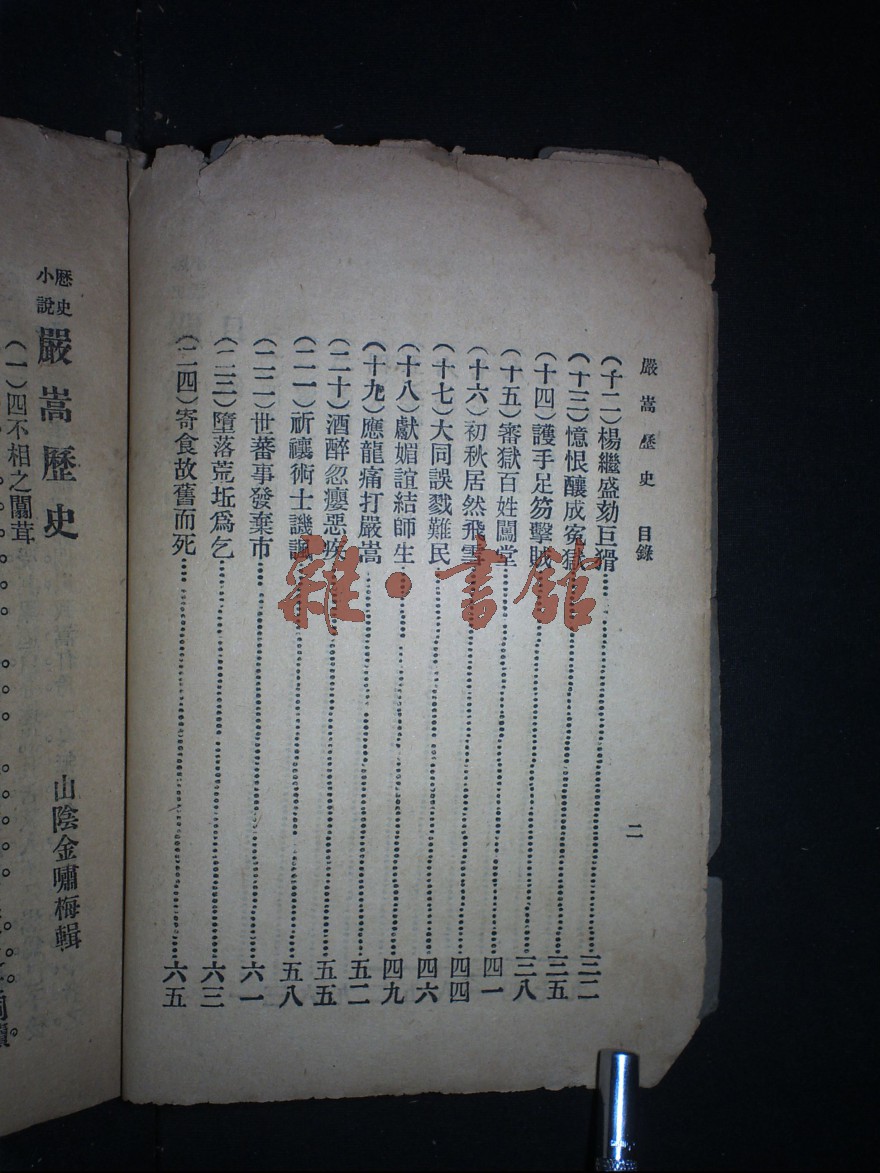 嚴嵩歷史 目錄
二
(十二)楊繼盛劾巨猾 三二
(十三)憶恨釀成寃獄 三五
(十四)護手足笏擊賊 三八
(十五)審獄百姓鬧堂 四一
(十六)初秋居然飛雪 四四
(十七)大同誤戮難民 四六
(十八)獻媚誼結師生 四九
(十九)應龍痛打嚴嵩 五二
(二十)酒醉忽癭惡疾 五五
(二一)祈禳術士譏諷 五八
(二二)世蕃事發棄市 六一
(二三)墮落荒坵爲乞 六三
(二四)寄食故舊而死 六五
歷史小說 嚴嵩歷史
山陰金嘯梅輯
(一)四不相之闒茸
雜·書館